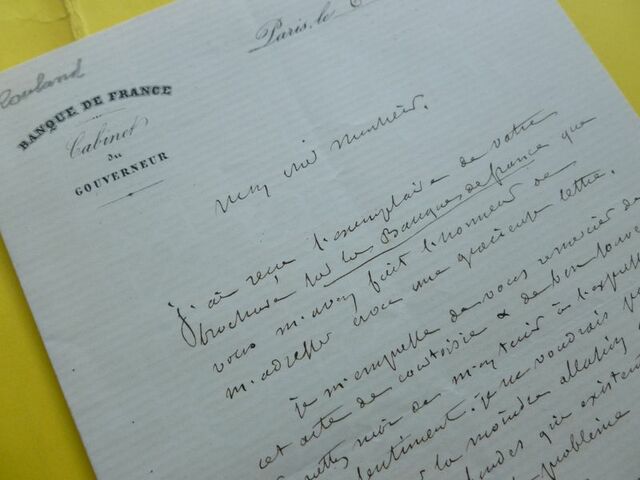 Rouland
Paris, le
BANQUE DE FRANCE
Cabinet
du
GOUVERNEUR
Mon cher Monsieur,
J'ai reçu l'exemplaire de votre
brochure sur les Banques de france que
vous m'avez fait l'honneur de
m'adresser avec une gracieuse lettre.
Je m'empresse de vous remercier de
cet acte de courtoisie & de bon souve
mettez moi de m'en tenir à l'expre
sentiment. je ne voudrais pa
la moindre
qui existe
problème